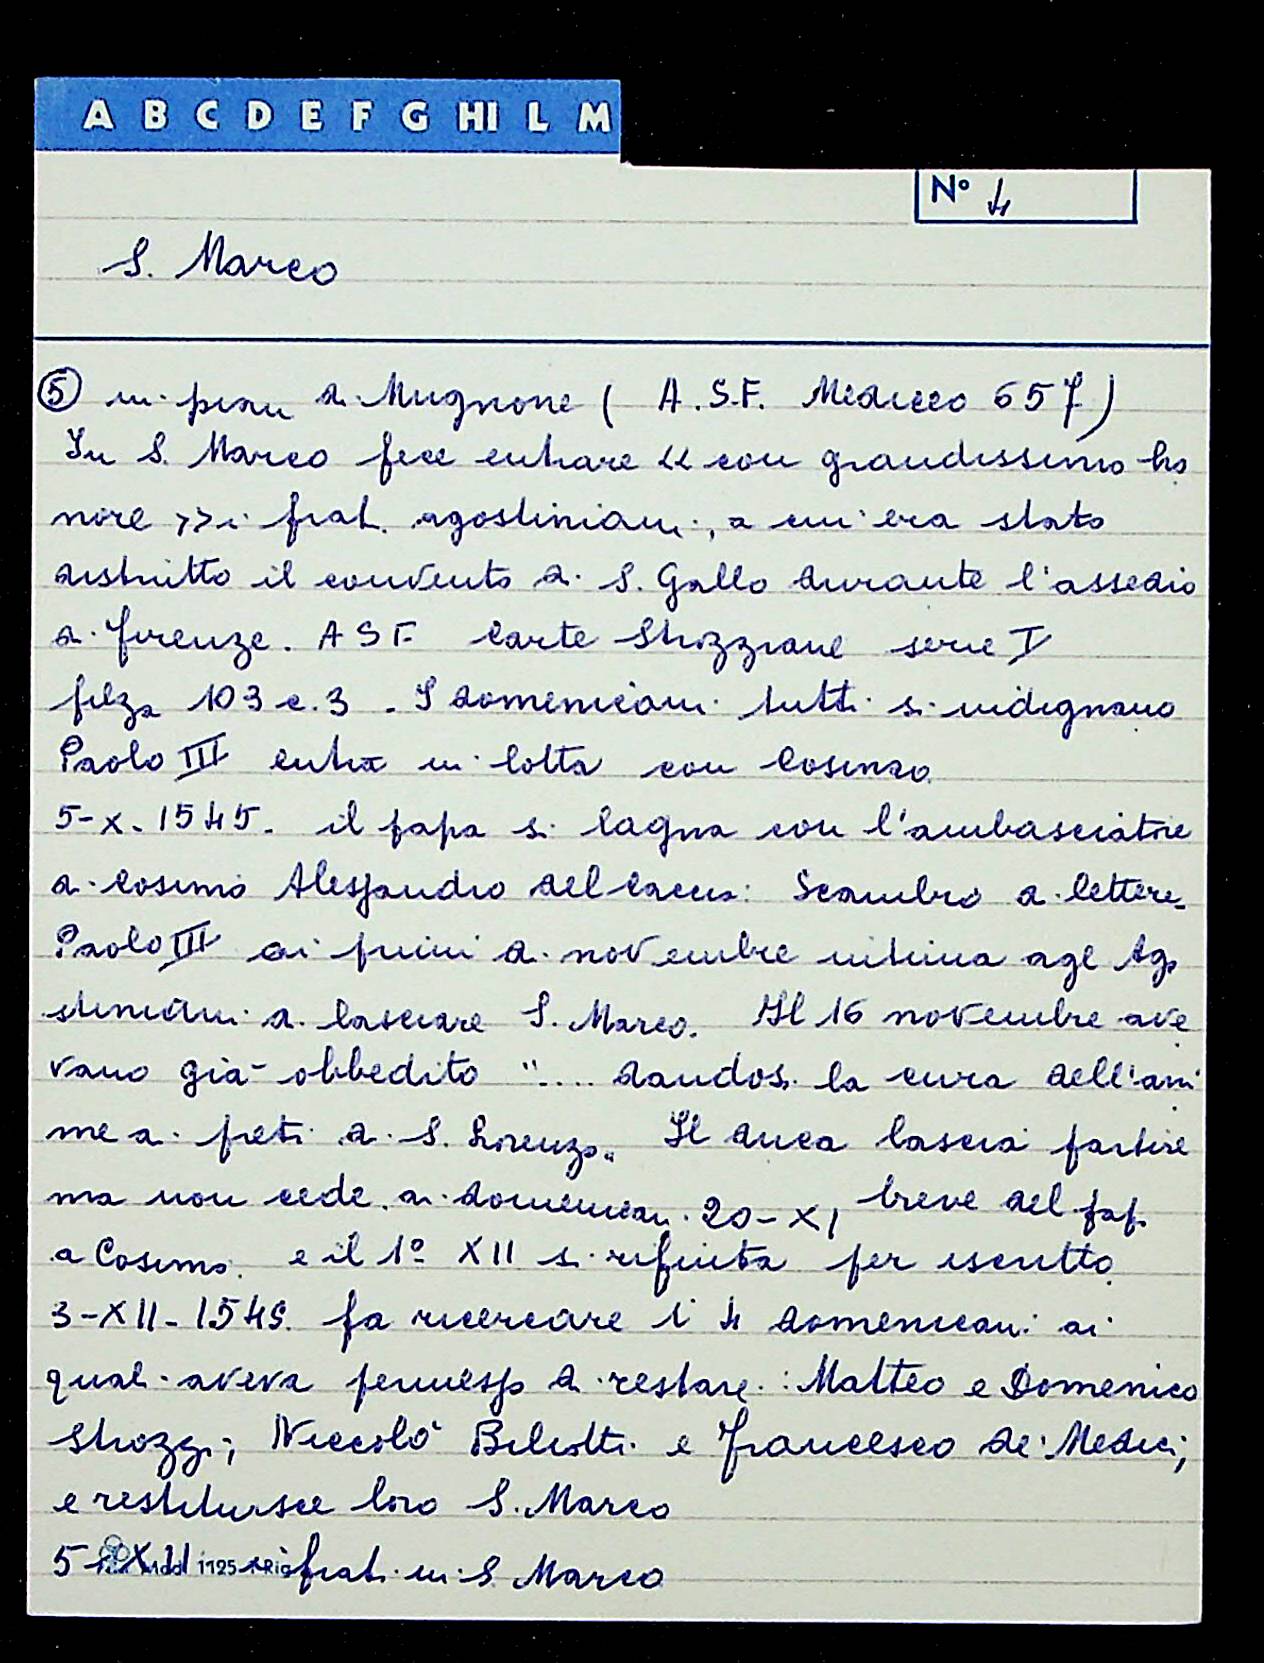 A B C D E F G HI L M
N° 4
S. Marco
⑤ in pian di Mugnone ( A.S.F. Mediceo 657)
In S. Marco fece entrare << con grandissimo ho
nore >> i frati agostiniani, a cui era stato
distrutto il convento di S. Gallo durante l'assedio
di Firenze. ASF Carte Strozziane serie I
filza 103 c.3 . I domenicani tutti si indignano
Paolo III entra in lotta con Cosimo
5-X-1545. il papa si lagna con l'ambasciatore
di Cosimo Alessandro del Caccia: Scambio di lettere.
Paolo III ai primi di novembre intima agl Ago
stiniani di lasciare S. Marco. Il 16 novembre ave
vano già obbedito ".... dandosi la cura dell'ani
me a preti di S. Lorenzo" Il duca lascia partire
ma non cede ai domenicani. 20-XI breve del papa
a Cosimo. e il 1° XII si rifiuta per iscritto
3-XII-1545. fa ricercare i 4 domenicani ai
quali aveva permesso di restare: Matteo e Domenico
Strozzi; Niccolò Biliotti e Francesco de' Medici;
e restituisce loro S. Marco
5 XII i frati in S. Marco